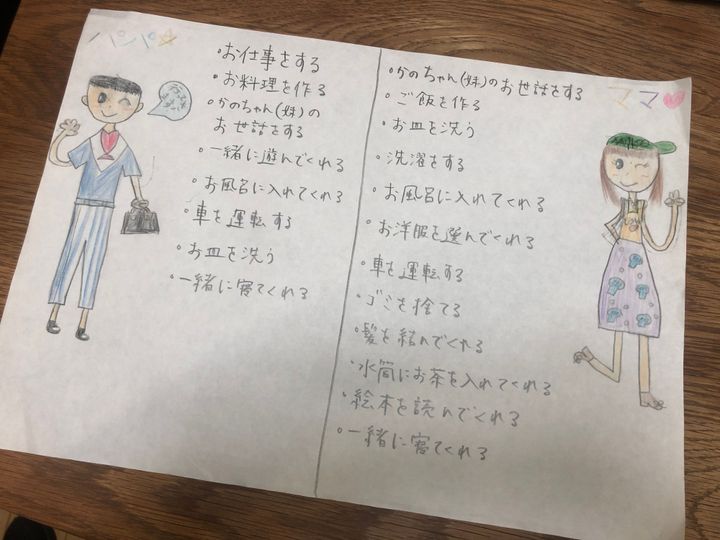 パパ
・お仕事をする
・お料理を作る
・かのちゃん(妹)の
お世話をする
・一緒に遊んでくれる
・お風呂に入れてくれる
・車を運転する
・お皿を洗う
・一緒に寝てくれる
ママ
・かのちゃん(妹)のお世話をする
・ご飯を作る
・お皿を洗う
・洗濯をする
・お風呂に入れてくれる
・お洋服を選んでくれる
・車を運転する
・ゴミを捨てる
・髪を結んでくれる
・水筒にお茶を入れてくれる
・絵本を読んでくれる
・一緒に寝てくれる